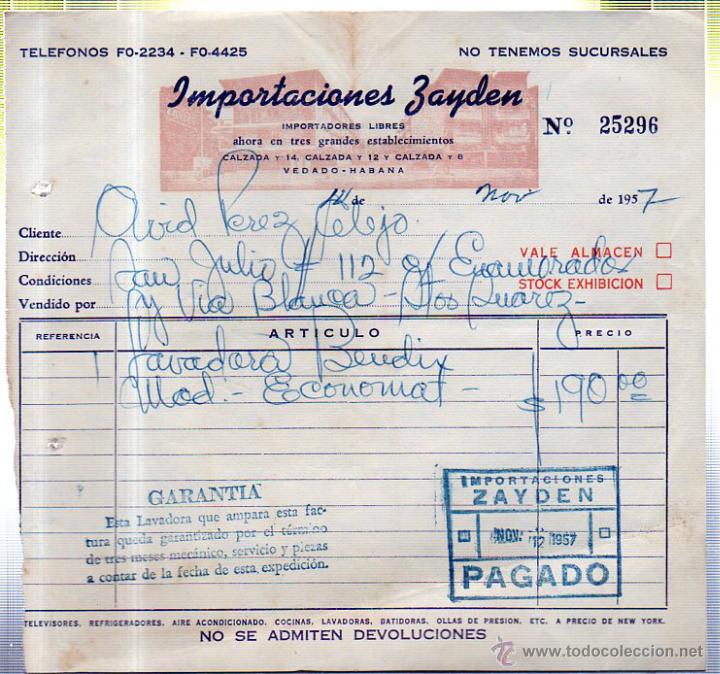 TELEFONOS FO-2234 - FO-4425 NO TENEMOS SUCURSALES
Importaciones Zayden
IMPORTADORES LIBRES
ahora en tres grandes establecimientos
CALZADA Y 14, CALZADA Y 12 Y CALZADA Y 8
VEDADO-HABANA
Nº 25296
12 de Nov de 1957
Cliente Ovid Perez Velejo.
Dirección San Julio # 112 e/ Enamorados
VALE ALMACEN
Condiciones y Via Blanca - Stos Suarez -
STOCK EXHIBICION
Vendido por
REFERENCIA ARTICULO PRECIO
1 Lavadora Bendix
Mod:- Economat - $190.00
GARANTIA
Esta Lavadora que ampara esta fac-
tura queda garantizado por el término
de tres meses mecánico, servicio y piezas
a contar de la fecha de esta expedición.
IMPORTACIONES
ZAYDEN
NOV 12 1957
PAGADO
TELEVISORES, REFRIGERADORES, AIRE ACONDICIONADO, COCINAS, LAVADORAS, BATIDORAS, OLLAS DE PRESION, ETC. A PRECIO DE NEW YORK.
NO SE ADMITEN DEVOLUCIONES
www.todocoleccion.net